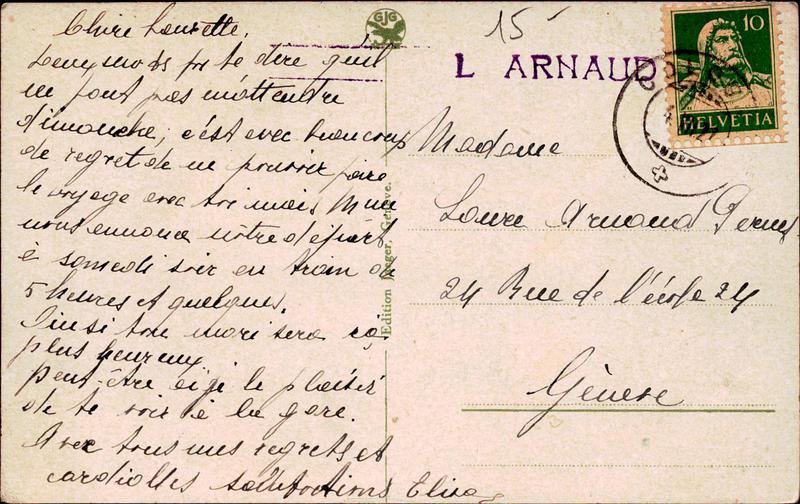 15-
L ARNAUD
10
HELVETIA
GJG
Chère Laurette,
te dire qu'il
ne faut pas m'attendre
dimanche, c'est avec beaucoup
de regret de ne pouvoir faire
le voyage avec toi mais Mme
nous annonce nôtre départ
à samedi soir en train de
5 heures et quelques.
Ainsi ton mari sera
plus heureux
Peut-être ai je le plaisir
de te voir à la gare.
Avec tous mes regrets et
cordialles salutations Elisa
Edition Jaeger, Genève.
Madame
Laure Arnaud
24 Rue de l'école 24
Gènève